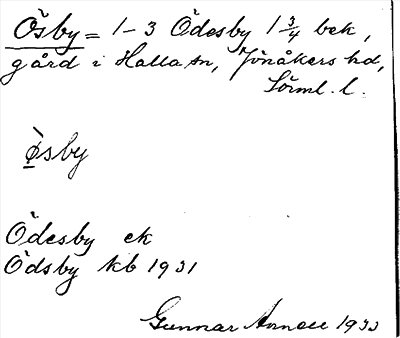 Ösby = 1-3 Ödesby 1 3/4 bek,
gård i Halla sn, Jönåkers hd,
Sörml. l.
Ösby
Ödesby ek
Ödsby kb 1931
Gunnar Annell 1933